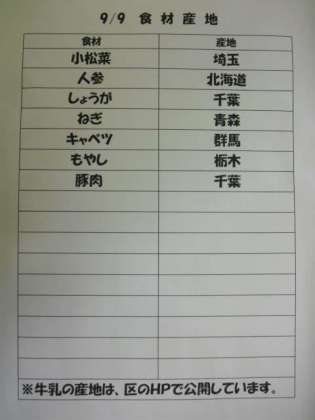 9/9 食材産地
食材 産地
小松菜 埼玉
人参 北海道
しょうが 千葉
ねぎ 青森
キャベツ 群馬
もやし 栃木
豚肉 千葉
※牛乳の産地は、区のHPで公開しています。